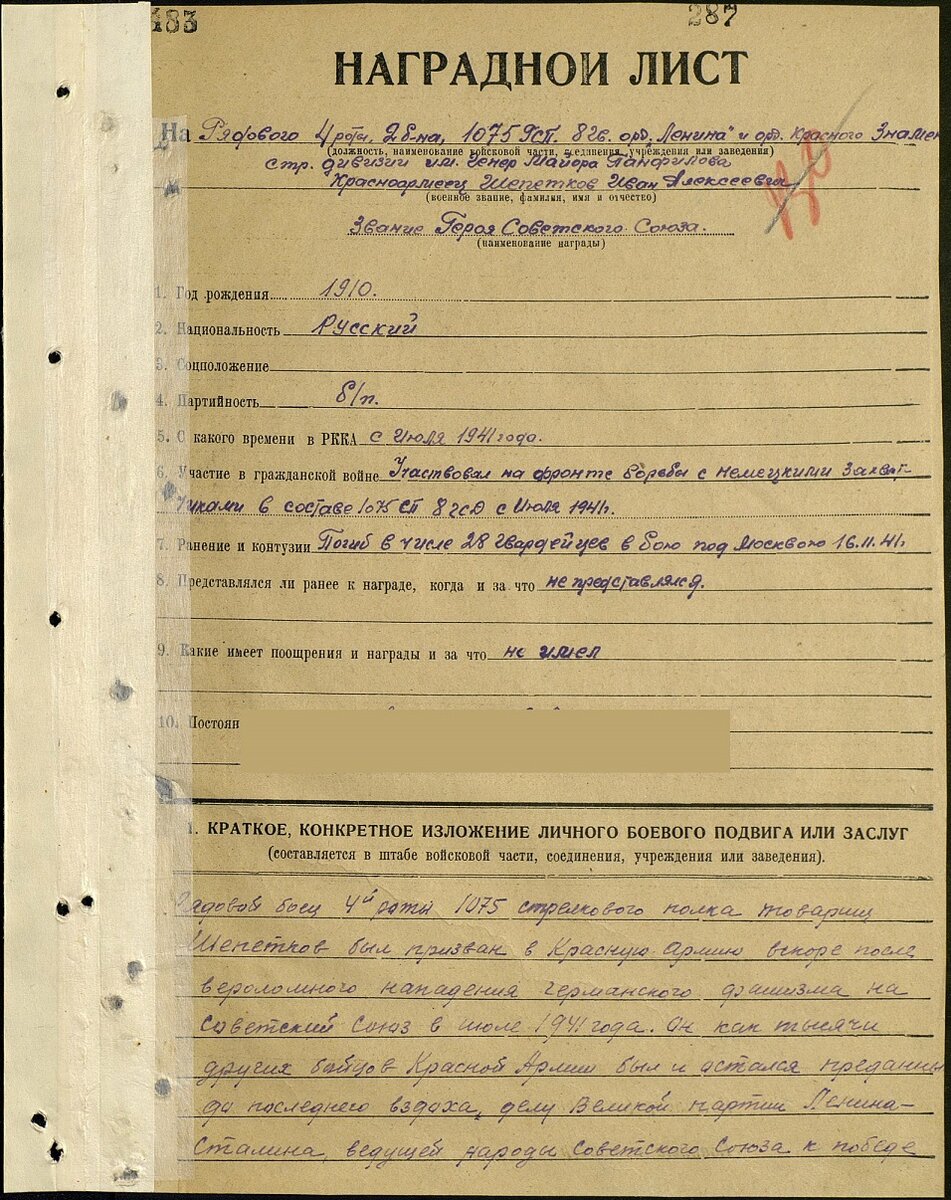 183
287
НАГРАДНОЙ ЛИСТ
На Рядового 4 роты, 2 б-на, 1075 Гсп. 8 гв. орд. „Ленина" и орд. Красного Знамен
(должность, наименование войсковой части, соединения, учреждения или заведения)
стр. дивизии им. Генер Майора Панфилова
Красноармеец Шепетков Иван Алексеевич
(военное звание, фамилия, имя и отчество)
Звание Героя Советского Союза.
(наименование награды)
1. Год рождения 1910.
2. Национальность Русский
3. Соцположение
4. Партийность б/п.
5. С какого времени в РККА с Июля 1941 года.
6. Участие в гражданской войне Участвовал на фронте борьбы с немецкими захват-
чиками в составе 1075 СП 8 гсд с Июля 1941г.
7. Ранение и контузии Погиб в числе 28 Гвардейцев в бою под Москвою 16.11.41г
8. Представлялся ли ранее к награде, когда и за что не представлялся.
9. Какие имеет поощрения и награды и за что не имел
10. Постоян
1. КРАТКОЕ, КОНКРЕТНОЕ ИЗЛОЖЕНИЕ ЛИЧНОГО БОЕВОГО ПОДВИГА ИЛИ ЗАСЛУГ
(составляется в штабе войсковой части, соединения, учреждения или заведения).
Рядовой боец 4й роты 1075 стрелкового полка товарищ
Шепетков был призван в Красную Армию вскоре после
вероломного нападения германского фашизма на
Советский Союз в июле 1941 года. Он как тысячи
других бойцов Красной Армии был и остался преданным
до последнего вздоха, делу Великой партии Ленина-
Сталина, ведущей народы Советского Союза к победе